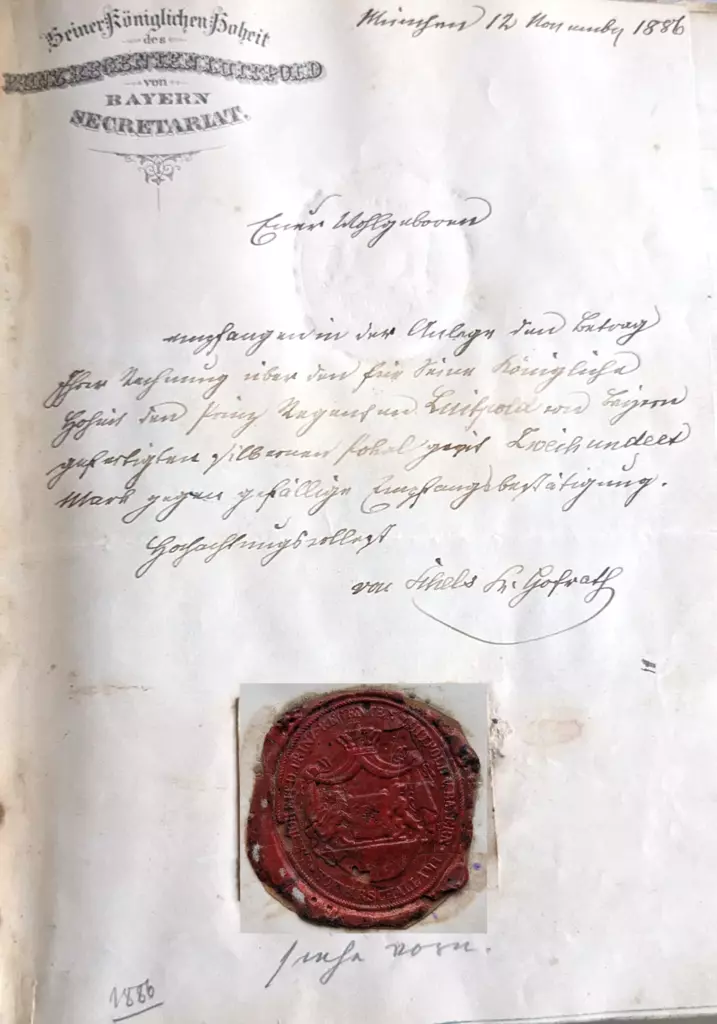 Seiner Königlichen Hoheit
des
PRINZREGENTEN LUITPOLD
von
BAYERN
SECRETARIAT.
München 12 November 1886
Euer Wohlgeboren
empfangen in der Anlage den Betrag
Ihrer Rechnung über den für Seine Königliche
Hoheit den Prinz Regenten Luitpold von Bayern
gefertigten silbernen Pokal zu Zweihundert
Mark gegen gefällige Empfangsbestätigung.
Hochachtungsvollst
von Hofrath
siehe vorn.
1886